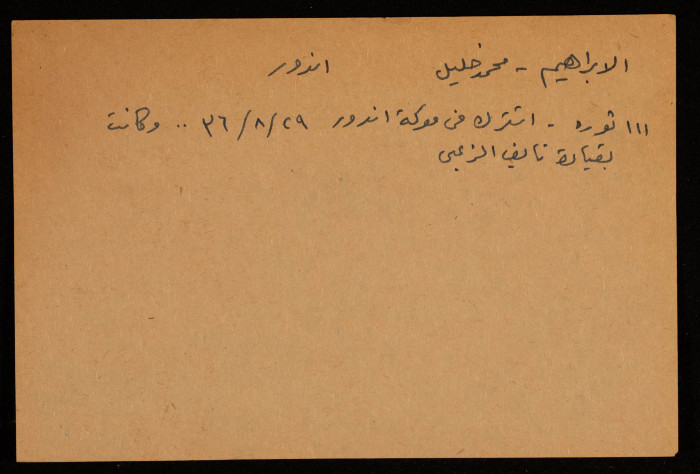 الابراهيم - محمد خليل اندور
١١١ ثوره - اشترك في معركة اندور ٢٩/٨/٣٦ .. وكانت
بقيادة نايف الزعبي